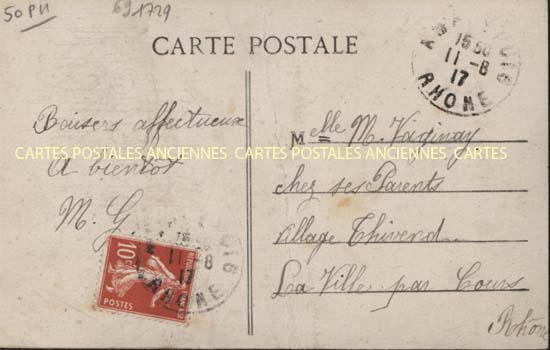 50 PU
691729
CARTE POSTALE
15 30
11-8
17
RHONE
Baisers affectueux
A bientot
M. G.
Melle M. Vaginay
chez ses Parents
village Thivend
La Ville par Cours
Rhône
CARTES POSTALES ANCIENNES CARTES POSTALES ANCIENNES CARTES
10c
POSTES
11-8
17
RHONE